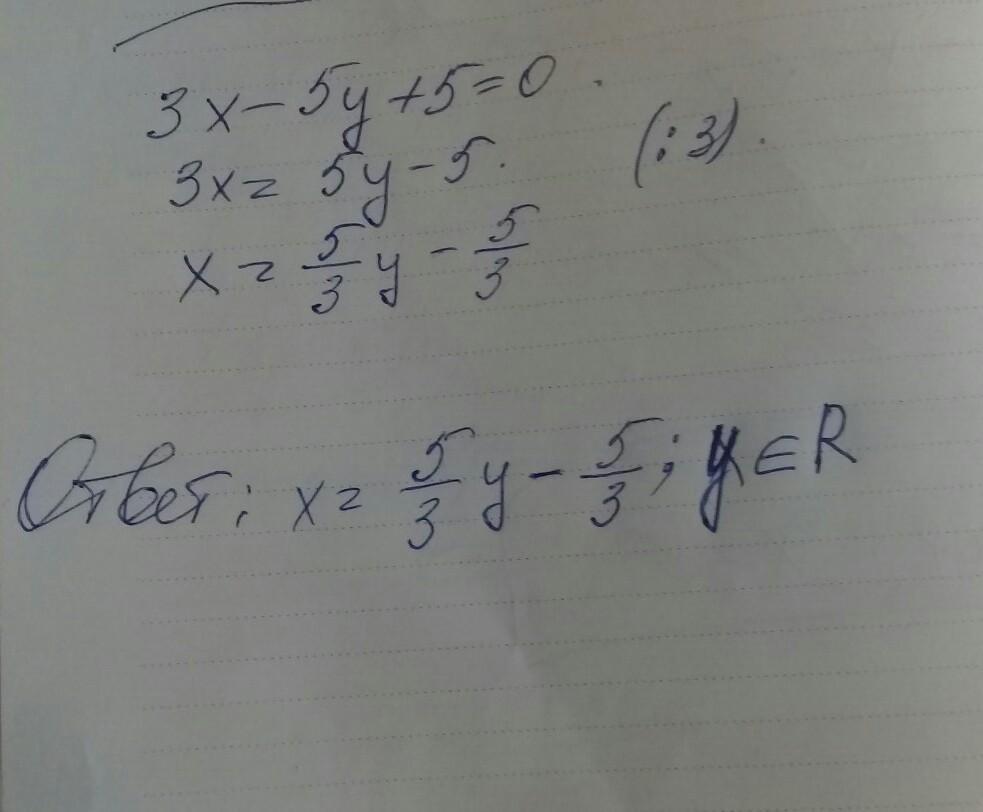 3x - 5y + 5 = 0.
3x = 5y - 5. (:3).
x = 5/3 y - 5/3
Ответ: x = 5/3 y - 5/3; y ∈ R